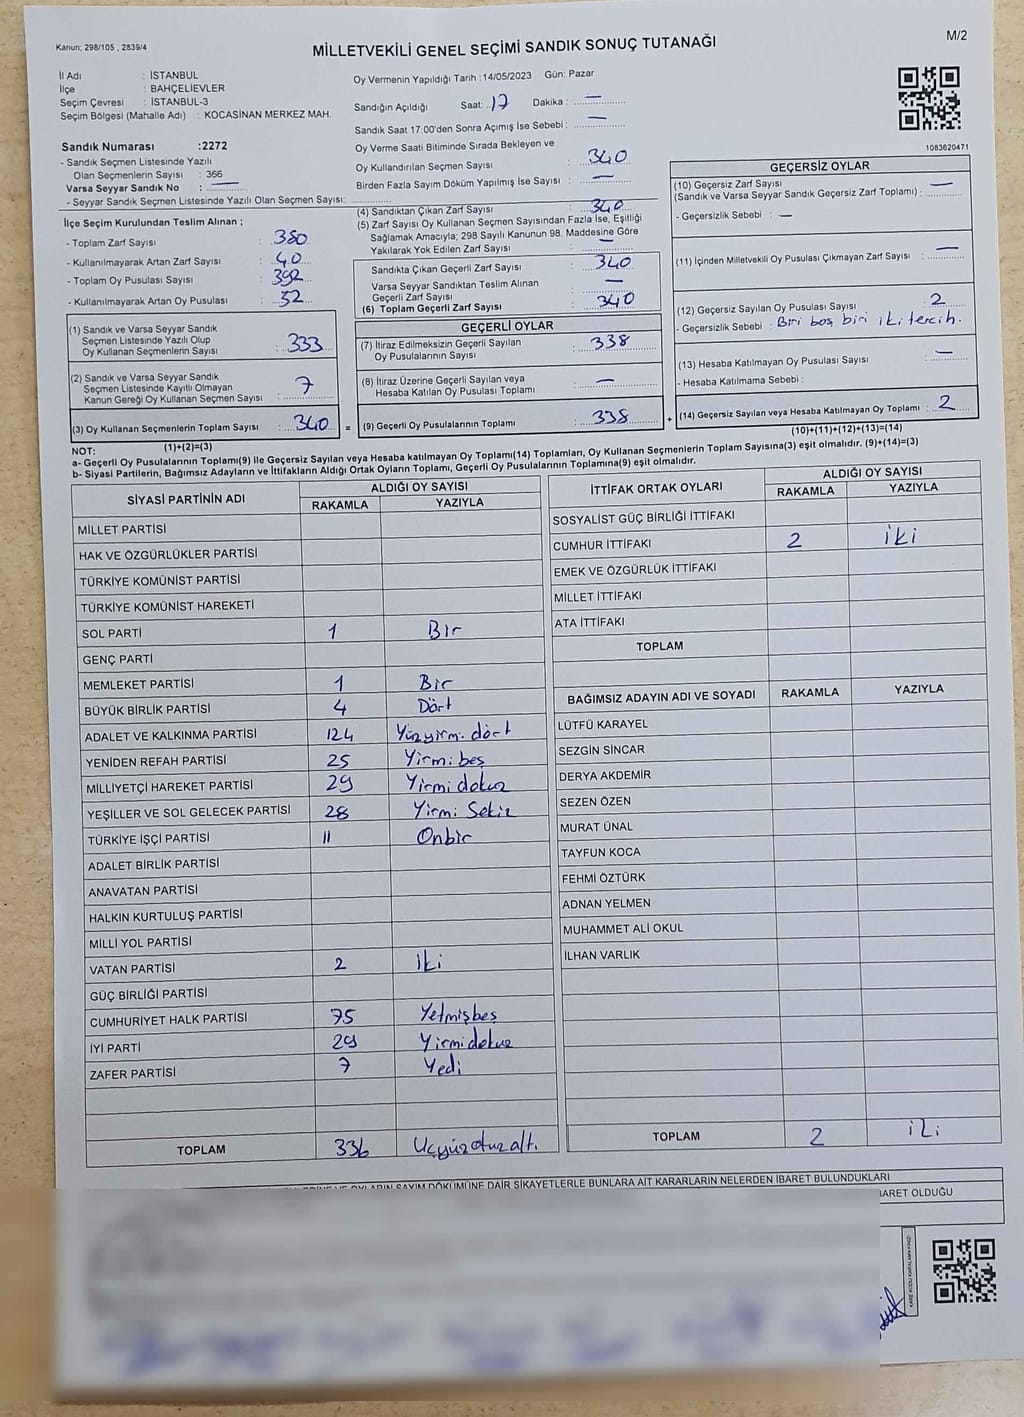 Kanun; 298/105 , 2839/4
MİLLETVEKİLİ GENEL SEÇİMİ SANDIK SONUÇ TUTANAĞI
M/2
İl Adı : İSTANBUL
İlçe : BAHÇELİEVLER
Seçim Çevresi : İSTANBUL-3
Seçim Bölgesi (Mahalle Adı) : KOCASİNAN MERKEZ MAH.
Sandık Numarası :2272
- Sandık Seçmen Listesinde Yazılı
Olan Seçmenlerin Sayısı : 366
Varsa Seyyar Sandık No : —
- Seyyar Sandık Seçmen Listesinde Yazılı Olan Seçmen Sayısı:
İlçe Seçim Kurulundan Teslim Alınan ;
- Toplam Zarf Sayısı : 380
- Kullanılmayarak Artan Zarf Sayısı : 40
- Toplam Oy Pusulası Sayısı : 392
- Kullanılmayarak Artan Oy Pusulası : 52
(1) Sandık ve Varsa Seyyar Sandık
Seçmen Listesinde Yazılı Olup
Oy Kullanan Seçmenlerin Sayısı : 333
(2) Sandık ve Varsa Seyyar Sandık
Seçmen Listesinde Kayıtlı Olmayan
Kanun Gereği Oy Kullanan Seçmen Sayısı : 7
(3) Oy Kullanan Seçmenlerin Toplam Sayısı : 340
(1)+(2)=(3)
Oy Vermenin Yapıldığı Tarih :14/05/2023 Gün: Pazar
Sandığın Açıldığı Saat: 17 Dakika : —
Sandık Saat 17:00'den Sonra Açımış İse Sebebi : —
Oy Verme Saati Bitiminde Sırada Bekleyen ve
Oy Kullandırılan Seçmen Sayısı : 340
Birden Fazla Sayım Döküm Yapılmış İse Sayısı : —
(4) Sandıktan Çıkan Zarf Sayısı : 340
(5) Zarf Sayısı Oy Kullanan Seçmen Sayısından Fazla İse, Eşitliği
Sağlamak Amacıyla; 298 Sayılı Kanunun 98. Maddesine Göre
Yakılarak Yok Edilen Zarf Sayısı : —
Sandıkta Çıkan Geçerli Zarf Sayısı : 340
Varsa Seyyar Sandıktan Teslim Alınan
Geçerli Zarf Sayısı : —
(6) Toplam Geçerli Zarf Sayısı : 340
GEÇERLİ OYLAR
(7) İtiraz Edilmeksizin Geçerli Sayılan
Oy Pusulalarının Sayısı : 338
(8) İtiraz Üzerine Geçerli Sayılan veya
Hesaba Katılan Oy Pusulası Toplamı : —
= (9) Geçerli Oy Pusulalarının Toplamı : 338 +
1083620471
GEÇERSİZ OYLAR
(10) Geçersiz Zarf Sayısı
(Sandık ve Varsa Seyyar Sandık Geçersiz Zarf Toplamı) : —
- Geçersizlik Sebebi : —
(11) İçinden Milletvekili Oy Pusulası Çıkmayan Zarf Sayısı : —
(12) Geçersiz Sayılan Oy Pusulası Sayısı : 2
- Geçersizlik Sebebi : Biri boş biri iki tercih.
(13) Hesaba Katılmayan Oy Pusulası Sayısı : —
- Hesaba Katılmama Sebebi :
(14) Geçersiz Sayılan veya Hesaba Katılmayan Oy Toplamı : 2
(10)+(11)+(12)+(13)=(14)
NOT:
a- Geçerli Oy Pusulalarının Toplamı(9) ile Geçersiz Sayılan veya Hesaba katılmayan Oy Toplamı(14) Toplamları, Oy Kullanan Seçmenlerin Toplam Sayısına(3) eşit olmalıdır. (9)+(14)=(3)
b- Siyasi Partilerin, Bağımsız Adayların ve İttifakların Aldığı Ortak Oyların Toplamı, Geçerli Oy Pusulalarının Toplamına(9) eşit olmalıdır.
SİYASİ PARTİNİN ADI ALDIĞI OY SAYISI
RAKAMLA YAZIYLA
MİLLET PARTİSİ
HAK VE ÖZGÜRLÜKLER PARTİSİ
TÜRKİYE KOMÜNİST PARTİSİ
TÜRKİYE KOMÜNİST HAREKETİ
SOL PARTİ 1 Bir
GENÇ PARTİ
MEMLEKET PARTİSİ 1 Bir
BÜYÜK BİRLİK PARTİSİ 4 Dört
ADALET VE KALKINMA PARTİSİ 124 Yüzyirmi dört
YENİDEN REFAH PARTİSİ 25 Yirmi beş
MİLLİYETÇİ HAREKET PARTİSİ 29 Yirmi dokuz
YEŞİLLER VE SOL GELECEK PARTİSİ 28 Yirmi Sekiz
TÜRKİYE İŞÇİ PARTİSİ 11 Onbir
ADALET BİRLİK PARTİSİ
ANAVATAN PARTİSİ
HALKIN KURTULUŞ PARTİSİ
MİLLİ YOL PARTİSİ
VATAN PARTİSİ 2 iki
GÜÇ BİRLİĞİ PARTİSİ
CUMHURİYET HALK PARTİSİ 75 Yetmişbeş
İYİ PARTİ 29 Yirmidokuz
ZAFER PARTİSİ 7 Yedi
TOPLAM 336 Üçyüzotuzaltı
İTTİFAK ORTAK OYLARI ALDIĞI OY SAYISI
RAKAMLA YAZIYLA
SOSYALİST GÜÇ BİRLİĞİ İTTİFAKI
CUMHUR İTTİFAKI 2 iki
EMEK VE ÖZGÜRLÜK İTTİFAKI
MİLLET İTTİFAKI
ATA İTTİFAKI
TOPLAM
BAĞIMSIZ ADAYIN ADI VE SOYADI RAKAMLA YAZIYLA
LÜTFÜ KARAYEL
SEZGİN SİNCAR
DERYA AKDEMİR
SEZEN ÖZEN
MURAT ÜNAL
TAYFUN KOCA
FEHMİ ÖZTÜRK
ADNAN YELMEN
MUHAMMET ALİ OKUL
İLHAN VARLIK
TOPLAM 2 iki
OYLARIN SAYIM DÖKÜMÜNE DAİR ŞİKAYETLERLE BUNLARA AİT KARARLARIN NELERDEN İBARET BULUNDUKLARI
İBARET OLDUĞU